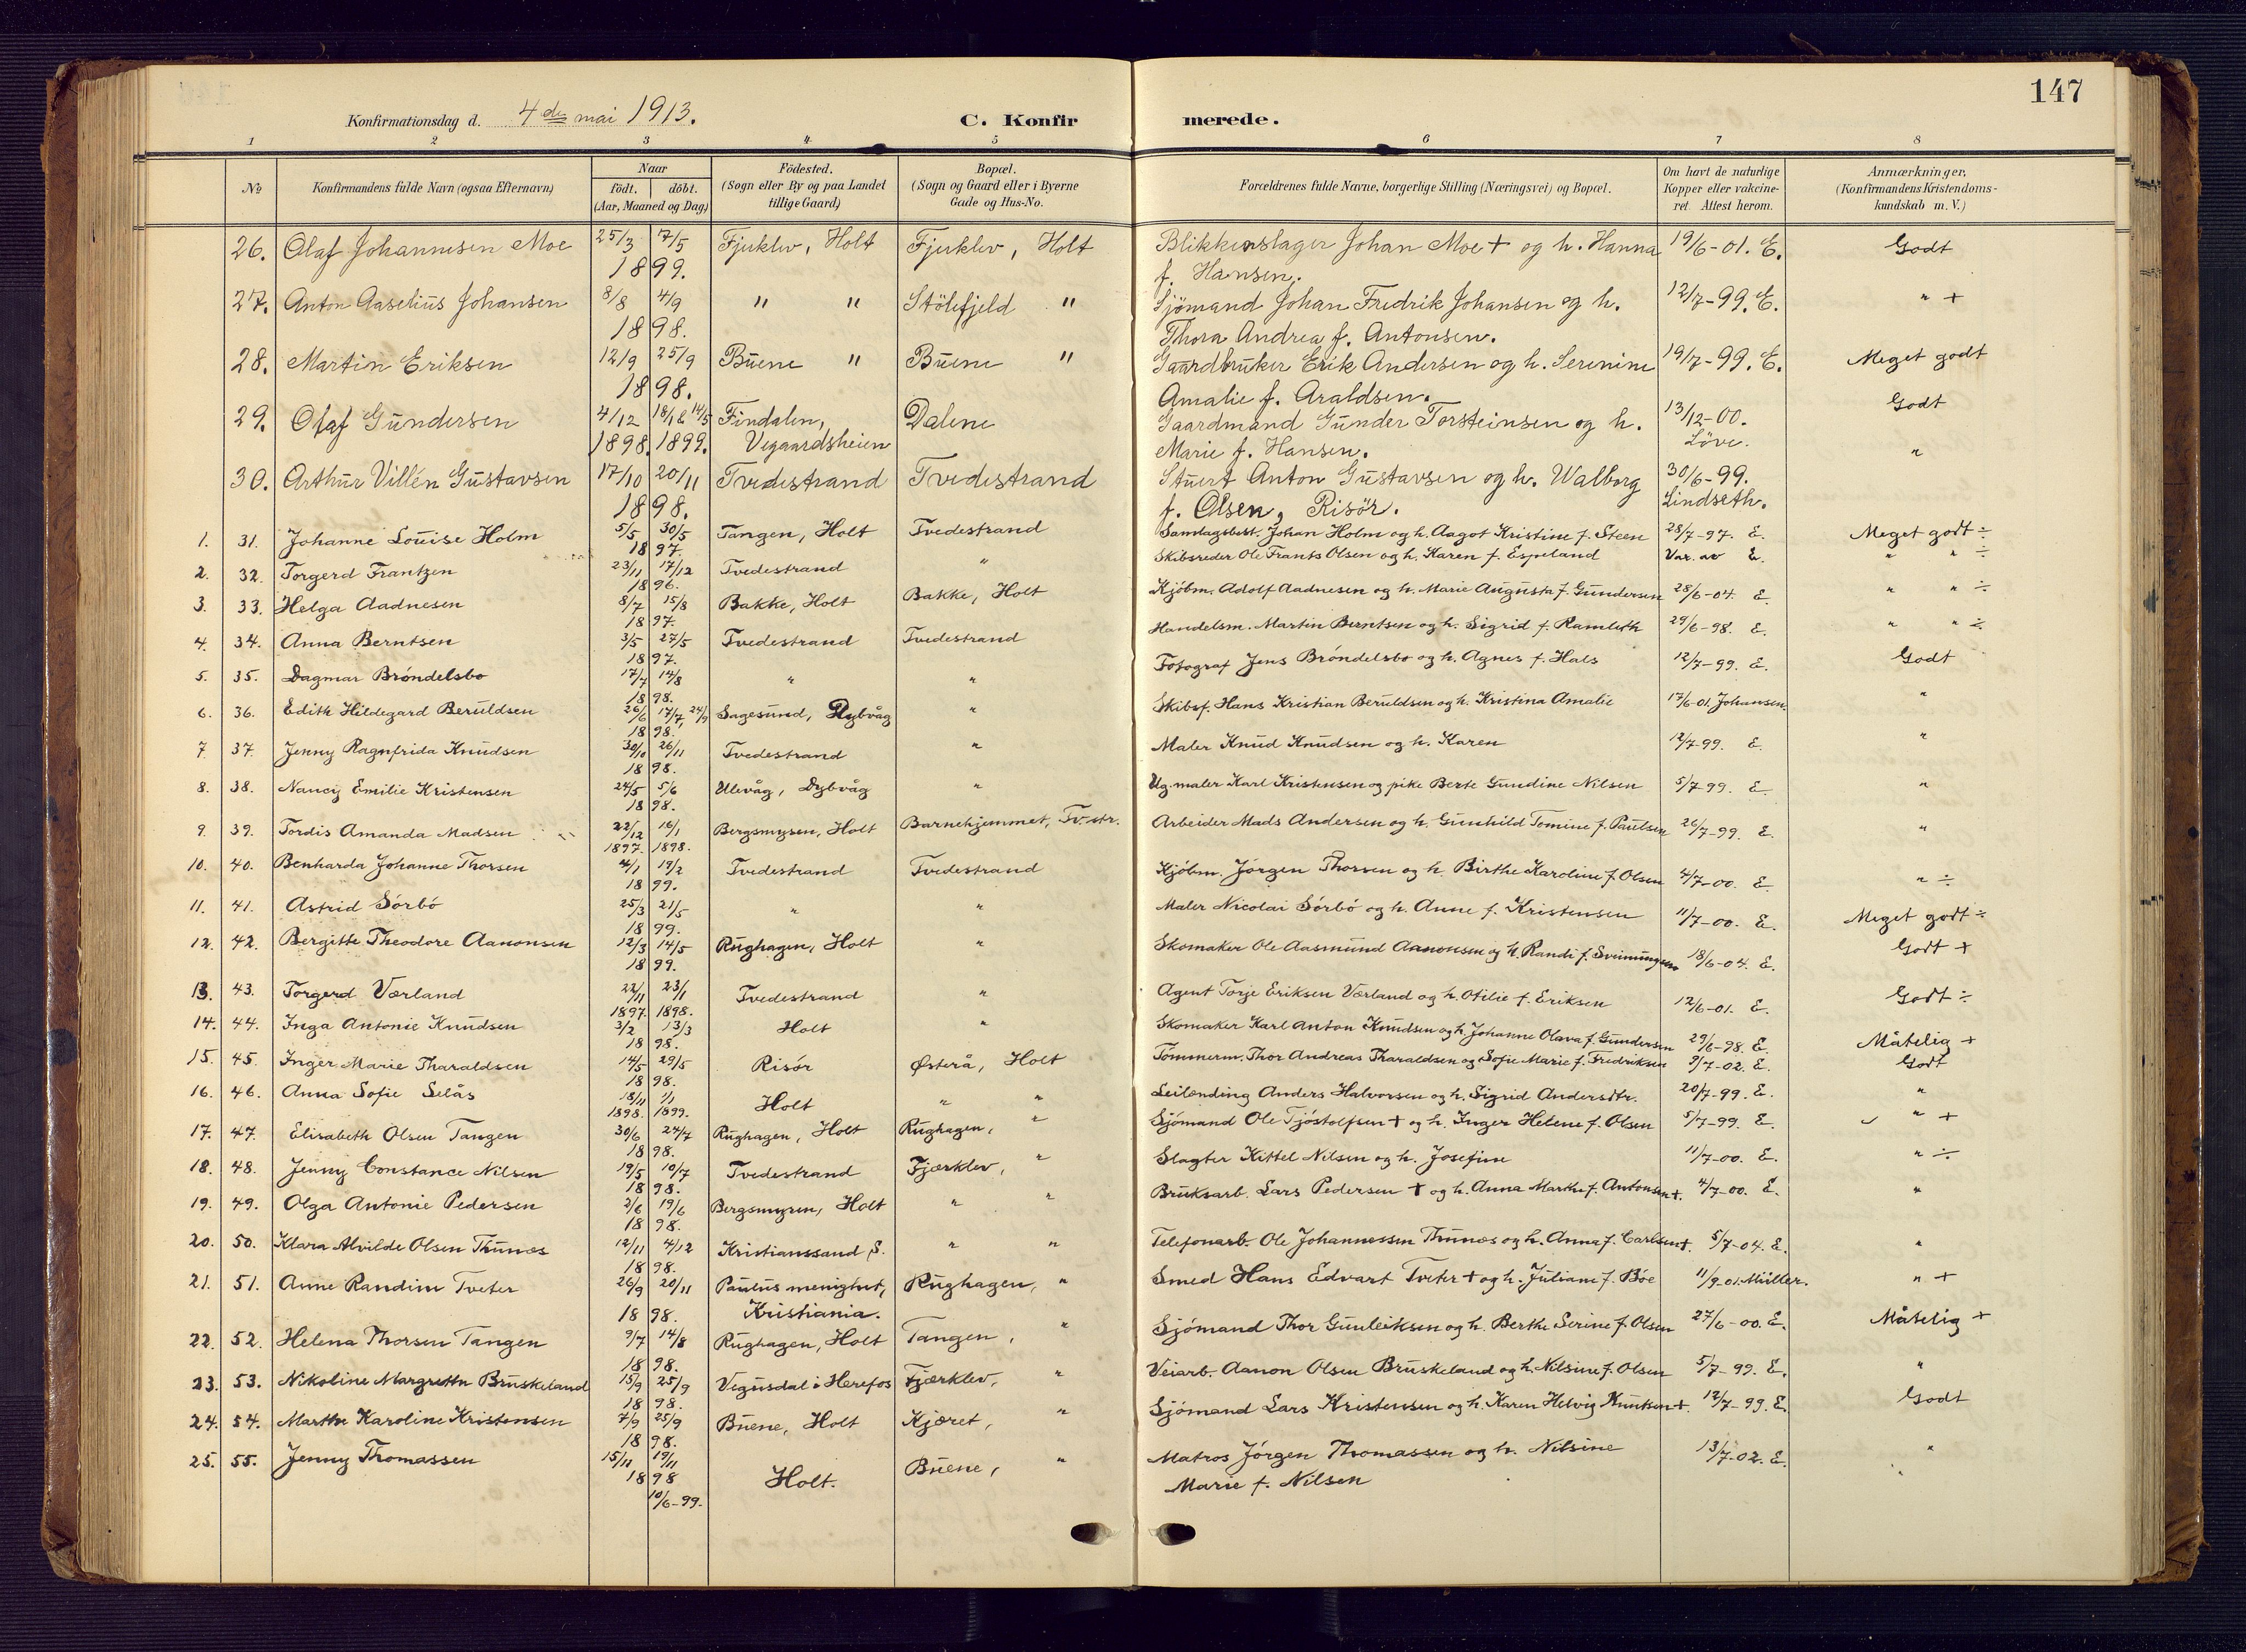 147
Konfirmationsdag d. 4de mai 1913. C. Konfirmerede.
1 2 3 4 5 6 7 8
No Konfirmandens fulde Navn (ogsaa Efternavn) Naar födt. döbt. (Aar, Maaned og Dag) Födested. (Sogn eller By og paa Landet tillige Gaard) Bopæl. (Sogn og Gaard eller i Byerne Gade og Hus-No. Forældrenes fulde Navne, borgerlige Stilling (Næringsvei) og Bopæl. Om havt de naturlige Kopper eller vakcineret. Attest herom. Anmærkninger, (Konfirmandens Kristendomskundskab m. V.)
26. Olaf Johannesen Moe 25/3 7/5 Fjerklev, Holt Fjerklev, Holt Blikkenslager Johan Moe + og h. Hanna 19/6-01. E. Godt
1899. f. Hansen.
27. Anton Aaselius Johansen 8/8 4/9 " " Stölefjeld " Sjömand Johan Fredrik Johansen og h. 12/7-99. E. " +
1898. Thora Andrea f. Antonsen.
28. Martin Eriksen 12/9 25/9 Buene " Buene " Gaardbruker Erik Andersen og h. Serenine 19/7-99. E. Meget godt
1898. Amalie f. Araldsen.
29. Olaf Gundersen 4/12 18/12 14/5 Findalen, Dalene Gaardmand Gunder Torsteinsen og h. 13/12-00. Godt
1898. 1899. Vegaardsheien Marie f. Hansen. Löve.
30. Arthur Villén Gustavsen 17/10 20/11 Tvedestrand Tvedestrand Stuert Anton Gustavsen og h. Walborg 30/6-99. "
1898. f. Olsen, Risör. Lindseth.
1. 31. Johanne Louise Holm 5/5 30/5 Tangen, Holt Tvedestrand Samlagsbest. Johan Holm og h. Aagot Kristine f. Steen 28/7-97. E. Meget godt ÷
1897.
2. 32. Torgerd Frantzen 23/11 17/12 Tvedestrand " Skibsreder Ole Frants Olsen og h. Karen f. Espeland Vax. av E. " " ÷
1896.
3. 33. Helga Aadnesen 8/7 15/8 Bakke, Holt Bakke, Holt Kjöbm. Adolf Aadnesen og h. Marie Augusta f. Gundersen 28/6-04. E. " " ÷
1897.
4. 34. Anna Berntsen 3/5 27/5 Tvedestrand Tvedestrand Handelsm. Martin Berntsen og h. Sigrid f. Ramleth 29/6-98. E. " " ÷
1897.
5. 35. Dagmar Bröndelsbo 17/7 14/8 " " Fotograf Jens Bröndelsbo og h. Agnes f. Hals 12/7-99. E. Godt
1898.
6. 36. Edith Hildegard Beruldsen 26/6 17/7, 24/9 Sagesund, Dybvåg " Skibsf. Hans Kristian Beruldsen og h. Kristina Amalie 17/6-01. Johansen. "
1898.
7. 37. Jenny Ragnfrida Knudsen 30/10 26/11 Tvedestrand " Maler Knud Knudsen og h. Karen 12/7-99. E. "
1898.
8. 38. Nancy Emilie Kristensen 24/5 5/6 Ulevåg, Dybvåg " Ug. maler Karl Kristensen og pike Berte Gundine Nilsen 5/7-99. E. "
1898.
9. 39. Tordis Amanda Madsen 22/12 16/1 Bergsmyren, Holt Barnehjemmet, Tv.str. Arbeider Mads Andersen og h. Gunhild Tomine f. Paulsen 26/7-99. E. "
1897. 1898.
10. 40. Benharda Johanne Thorsen 4/1 19/2 Tvedestrand Tvedestrand Kjöbm. Jörgen Thorsen og h. Birthe Karoline f. Olsen 4/7-00. E. " ÷
1899.
11. 41. Astrid Sörbö 25/3 21/5 " " Maler Nicolai Sörbö og h. Anne f. Kristensen 11/7-00. E. Meget godt ÷
1899.
12. 42. Bergitte Theodore Aanonsen 12/3 14/5 Rughagen, Holt " Skomaker Ole Aasmund Aanonsen og h. Randi f. Sveinungsen 18/6-04. E. Godt +
1899.
13. 43. Torgerd Værland 22/11 23/1 Tvedestrand " Agent Torje Eriksen Værland og h. Otilie f. Eriksen 12/6-01. E. Godt ÷
1897. 1898.
14. 44. Inga Antonie Knudsen 3/2 13/3 Holt " Skomaker Karl Anton Knudsen og h. Johanne Olava f. Gundersen 29/6-98. E. Måtelig +
1898.
15. 45. Inger Marie Tharaldsen 14/5 29/5 Risör Østerå, Holt Tömmerm. Thor Andreas Tharaldsen og Sofie Marie f. Fredriksen 9/7-02. E. Godt
1898.
16. 46. Anna Sofie Selås 18/11 1/1 Holt " " Leilending Anders Halvorsen og h. Sigrid Andersdtr. 20/7-99. E. "
1898. 1899.
17. 47. Elisabeth Olsen Tangen 30/6 24/7 Rughagen, Holt Rughagen, " Sjömand Ole Tjöstolfsen + og h. Inger Helene f. Olsen 5/7-99. E. " +
1898.
18. 48. Jenny Constance Nilsen 19/5 10/7 Tvedestrand Fjærklev, " Slagter Kittel Nilsen og h. Josefine 11/7-00. E. " ÷
1898.
19. 49. Olga Antonie Pedersen 2/6 19/6 Bergsmyren, Holt " " Bruksarb. Lars Pedersen + og h. Anna Marthe f. Antonsen +. 4/7-00. E. "
1898.
20. 50. Klara Alvilde Olsen Thunæs 12/11 4/12 Kristianssand S. " " Telefonarb. Ole Johannessen Thunæs og h. Anna f. Carlsen +. 5/7-04. E. "
1898.
21. 51. Anne Randine Tveter 26/9 20/11 Paulus menighet, Rughagen, " Smed Hans Edvart Tveter + og h. Juliane f. Böe 11/9-01. Müller. " +
1898. Kristiania.
22. 52. Helena Thorsen Tangen 9/7 14/8 Rughagen, Holt Tangen, " Sjömand Thor Gunleiksen og h. Berthe Serine f. Olsen 27/6-00. E. Måtelig +
1898.
23. 53. Nikoline Margrethe Bruskeland 15/9 25/9 Vegusdal i Herefos Fjærklev, " Veiarb. Aanon Olsen Bruskeland og h. Nilsine f. Olsen 5/7-99. E. "
1898.
24. 54. Marthe Karoline Kristensen 7/9 25/9 Buene, Holt Kjæret, " Sjömand Lars Kristensen og h. Karen Helvig +. 12/7-99. E. Godt
1898.
25. 55. Jenny Thomassen 15/11 19/11 Holt. Buene, " Matros Jörgen Thomassen og h. Nilsine 13/7-02. E. "
1898 Marie f. Nilsen
10/6-99.